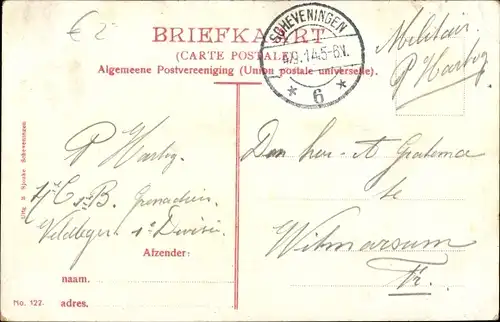 €2
BRIEFKAART
(CARTE POSTALE)
Algemeene Postvereeniging (Union postale universelle).
SCHEVENINGEN
14 5-6V.
* 6 *
Militair
P Hartog
P Hartog
4e C 1e B. Grenadiers
Veldleger 1e Divisie
Afzender:
naam.
No. 122. adres.
Den heer A Gratema
te
Witmarsum
Fr.